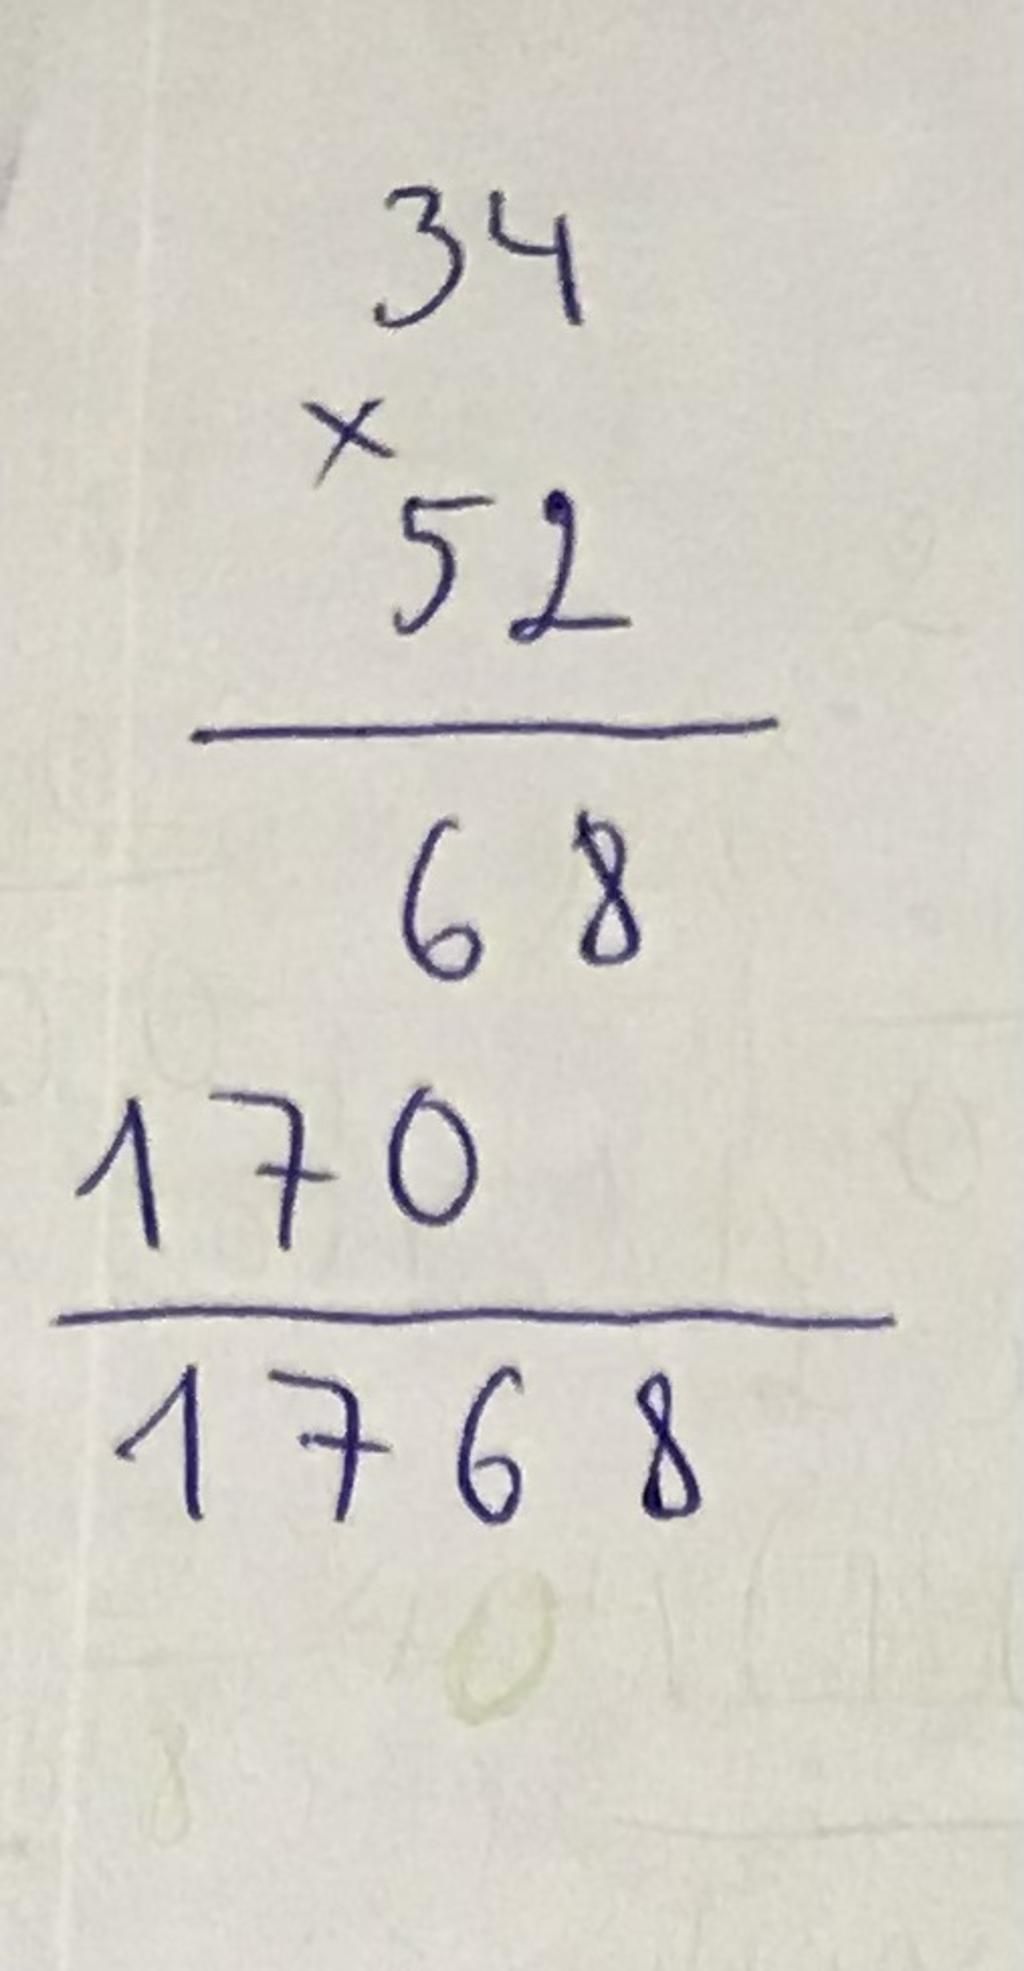 34
×
52
68
170
1768